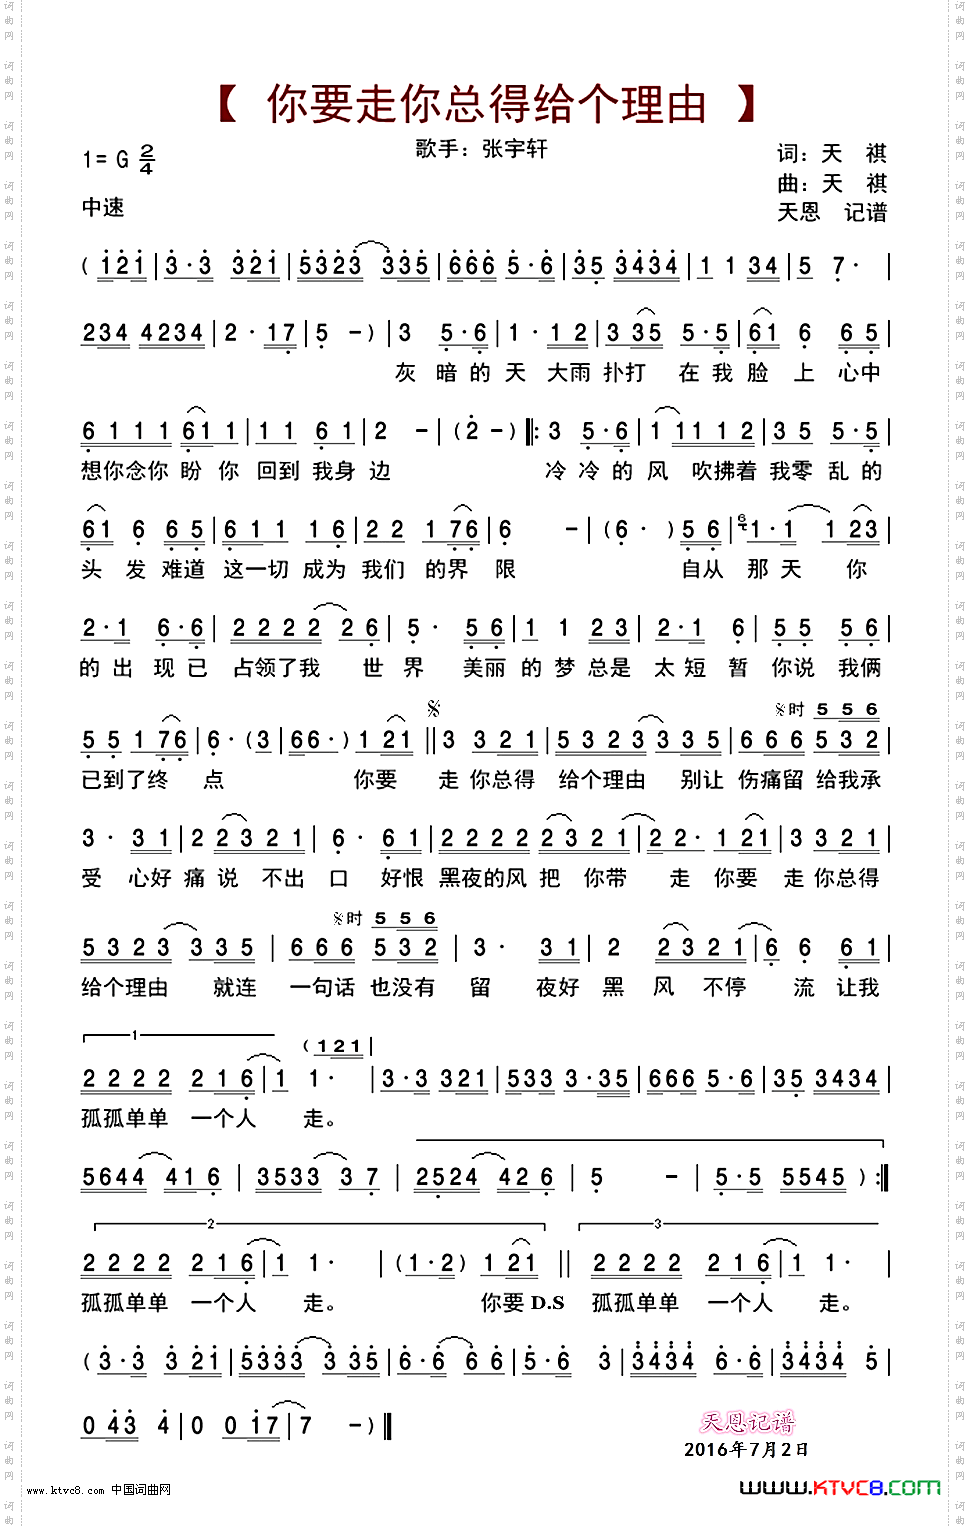 【 你要走你总得给个理由 】
1= G 2/4
歌手：张宇轩
词：天 祺
曲：天 祺
中速
天恩 记谱
( 121 | 3·3 321 | 5323 335 | 666 5·6 | 35 3434 | 1 1 34 | 5 7· |
234 4234 | 2·17 | 5 -) | 3 5·6 | 1·12 | 3 35 5·5 | 61 6 65 |
灰 暗的天 大雨扑打 在我脸 上 心中
6111 611 | 11 61 | 2 - | (2 -) ‖: 3 5·6 | 1 1112 | 35 5·5 |
想你念你 盼 你 回到我身边 冷 冷的风 吹拂着我零 乱的
61 6 65 | 611 16 | 22 176 | 6 - | (6· ) 56 | 6 1·1 1 23 |
头 发 难道 这一切 成为 我们 的界 限 自从 那 天 你
2·1 6·6 | 2222 226 | 5· 56 | 1 1 23 | 2·1 6 | 55 56 |
的出 现已 占领了我 世 界 美丽的梦总是 太短暂 你说 我俩
※时 5 56
55 176 | 6·(3 | 66·) 121 ‖ 3 321 | 5323 335 | 666 532 |
已到了终 点 你要 走你总得 给个理由 别让 伤痛留 给我承
3· 31 | 2 2321 | 6· 61 | 2222 2321 | 22· 121 | 3 321 |
受 心好痛说 不出口 好恨 黑夜的风把 你带 走 你要 走你总得
※时 5 56
5323 335 | 666 532 | 3· 31 | 2 2321 | 6 6 61 |
给个理由 就连 一句话 也没有 留 夜好黑 风 不停 流 让我
1
( 121 |
2222 216 | 1 1· | 3·3 321 | 533 3·35 | 666 5·6 | 35 3434 |
孤孤单单 一个人 走。
5644 416 | 3533 37 | 2524 426 | 5 - | 5·5 5545 ) :‖
2 3
2222 216 | 1 1· | (1·2) 121 ‖ 2222 216 | 1 1· |
孤孤单单 一个人 走。 你要 D.S 孤孤单单 一个人 走。
( 3·3 321 | 5333 335 | 6·6 66 | 5·6 3 | 3434 6·6 | 3434 5 |
0 43 4 | 0 0 17 | 7 -) ‖
天恩记谱
2016年7月2日
www.ktvc8.com 中国词曲网
www.KTVC8.com